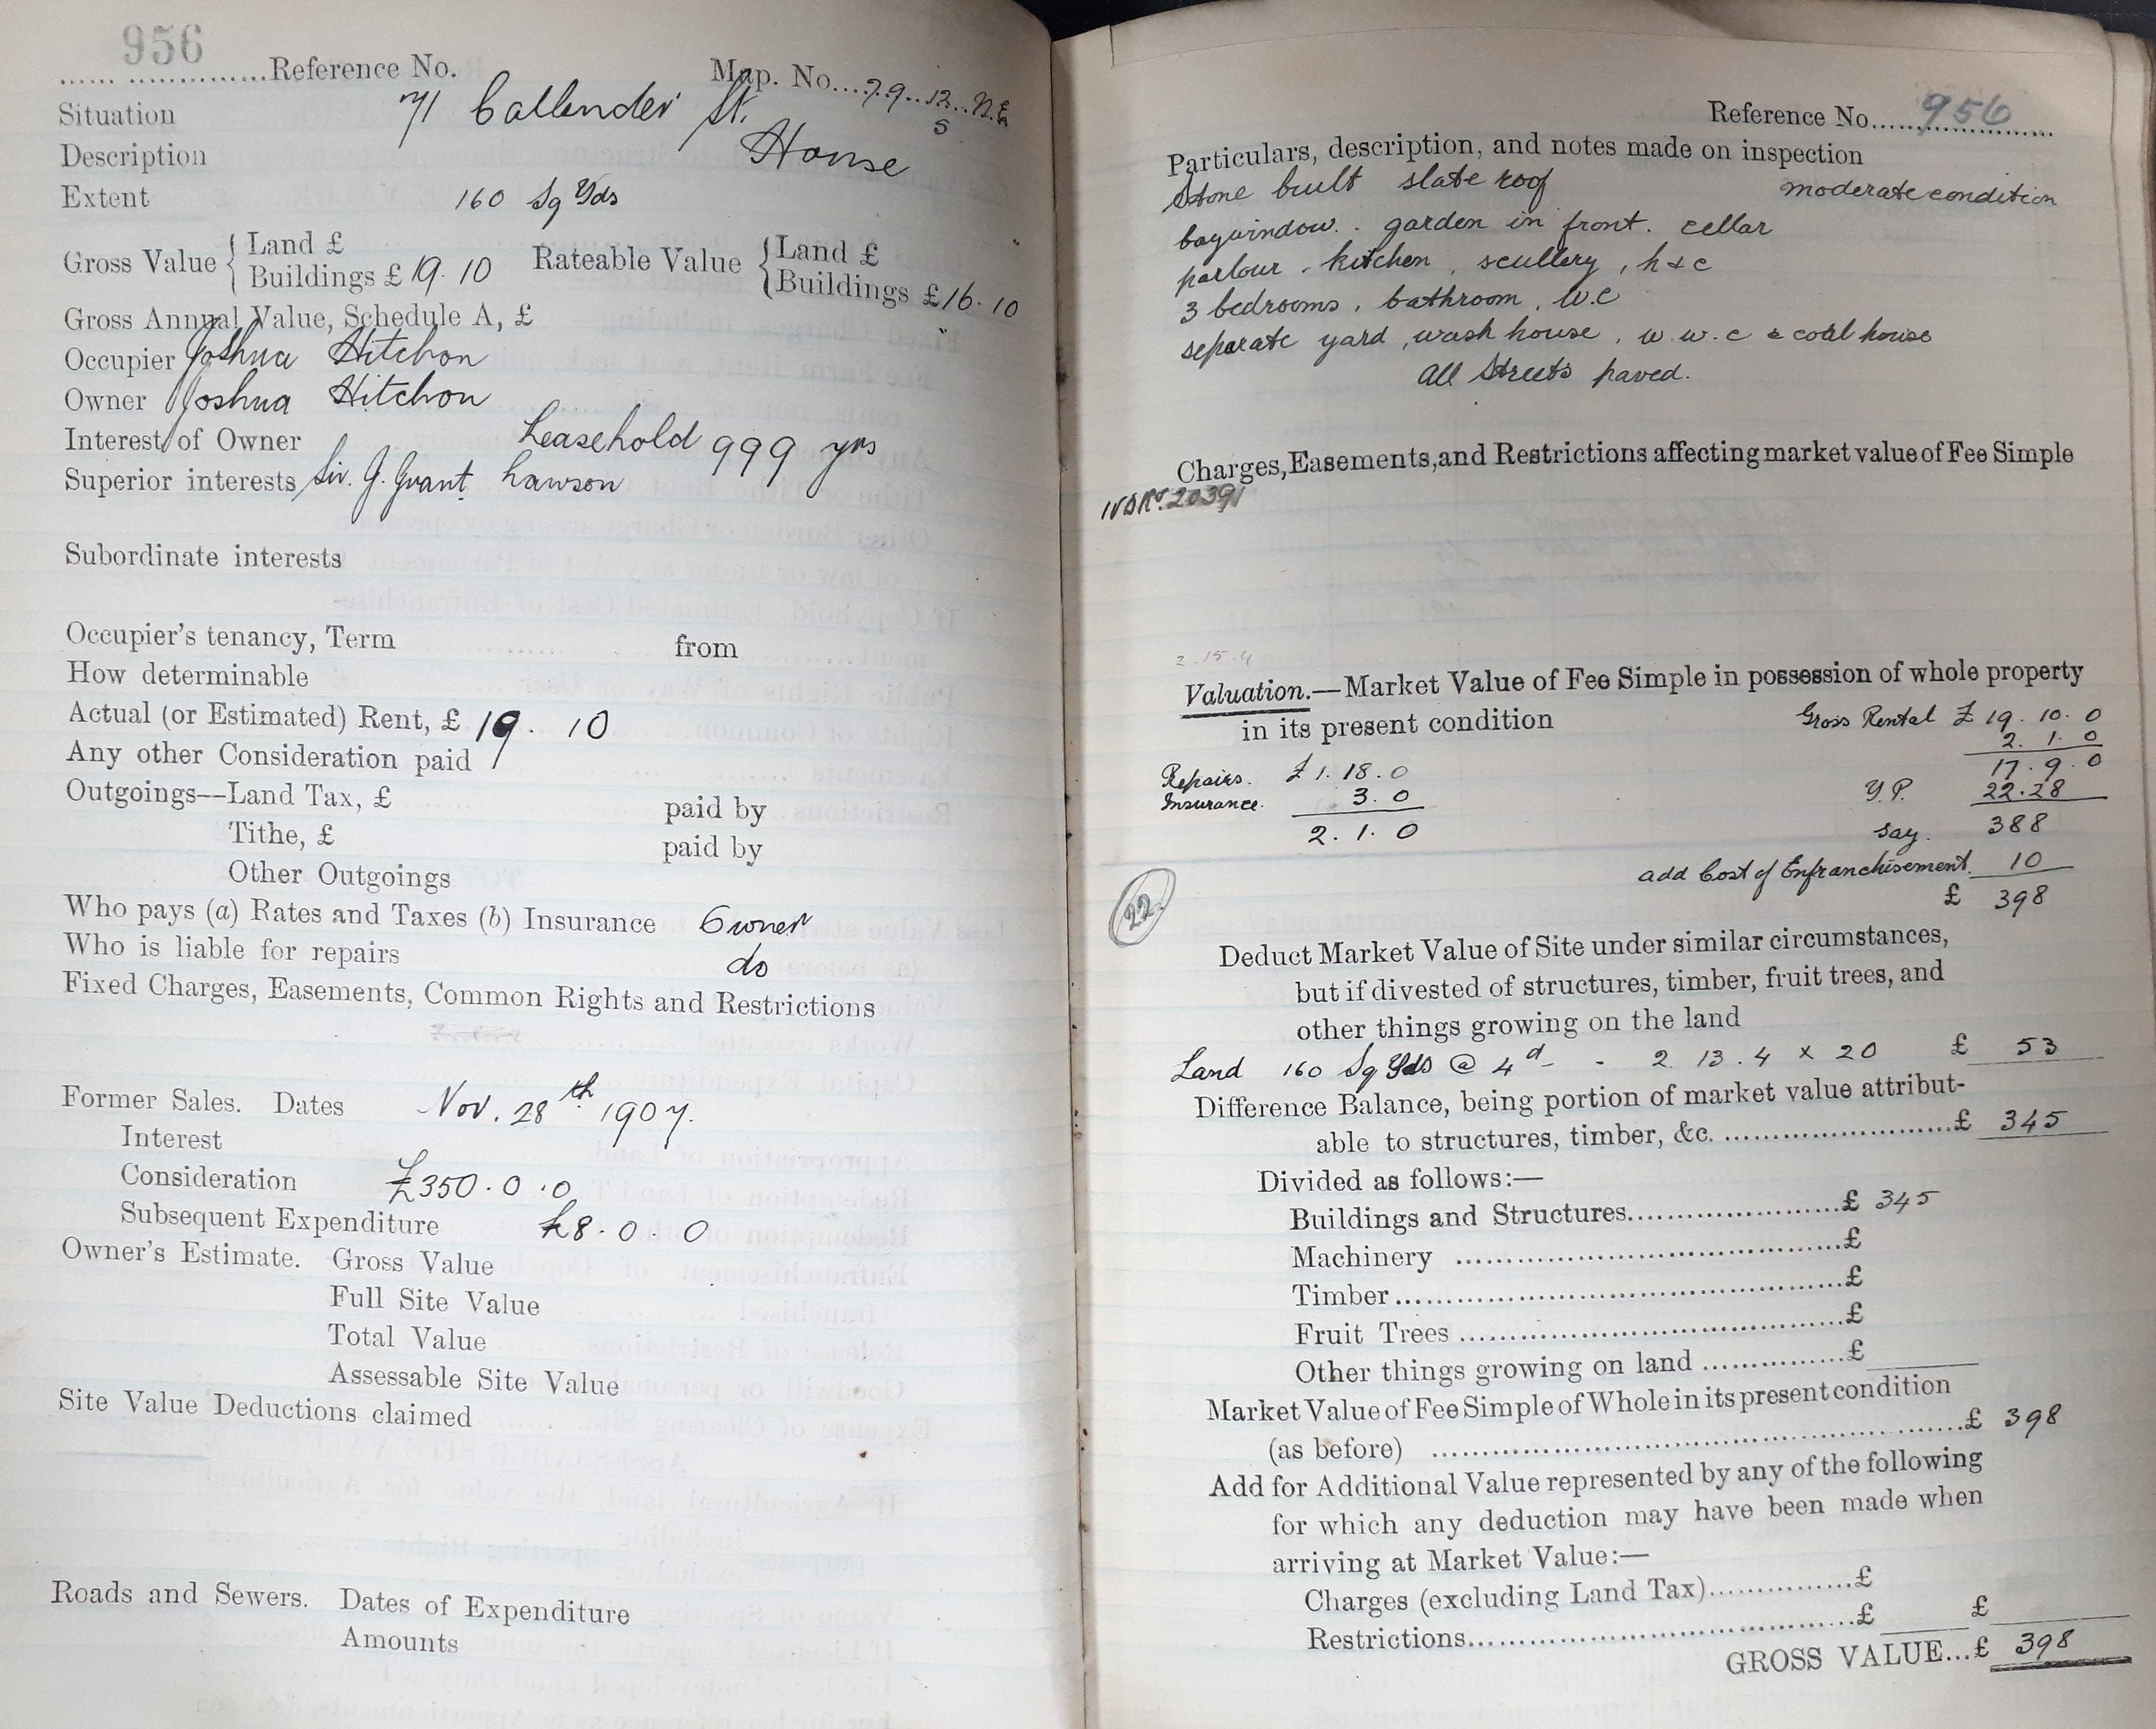 956
Reference No. Map. No. 79. 12. N.E
5
Situation 71 Callender St.
Description House
Extent 160 Sq Yds
Gross Value { Land £ Rateable Value { Land £
Buildings £ 19. 10 Buildings £ 16. 10
Gross Annual Value, Schedule A, £
Occupier Joshua Hitchon
Owner Joshua Hitchon
Interest of Owner Leasehold 999 yrs
Superior interests Sir. J. Grant Lawson
Subordinate interests
Occupier's tenancy, Term from
How determinable
Actual (or Estimated) Rent, £ 19. 10
Any other Consideration paid
Outgoings—Land Tax, £ paid by
Tithe, £ paid by
Other Outgoings
Who pays (a) Rates and Taxes (b) Insurance Owner
Who is liable for repairs do
Fixed Charges, Easements, Common Rights and Restrictions
Former Sales. Dates Nov. 28th 1907.
Interest
Consideration £350. 0. 0
Subsequent Expenditure £8. 0. 0
Owner's Estimate. Gross Value
Full Site Value
Total Value
Assessable Site Value
Site Value Deductions claimed
Roads and Sewers. Dates of Expenditure
Amounts
Reference No. 956
Particulars, description, and notes made on inspection
Stone built slate roof moderate condition
baywindow. garden in front. cellar
parlour. kitchen, scullery, h & c
3 bedrooms, bathroom, W.C
separate yard, wash house, w.w.c & coal house
All Streets paved.
Charges, Easements, and Restrictions affecting market value of Fee Simple
2.15.4
Valuation.—Market Value of Fee Simple in possession of whole property
in its present condition Gross Rental £ 19. 10. 0
2. 1. 0
Repairs. £ 1. 18. 0 17. 9. 0
Insurance. 3. 0 Y.P. 22.28
2. 1. 0 say. 388
add Cost of Enfranchisement 10
£ 398
22
Deduct Market Value of Site under similar circumstances,
but if divested of structures, timber, fruit trees, and
other things growing on the land
Land 160 Sq Yds @ 4d - - 2. 13. 4 x 20 £ 53
Difference Balance, being portion of market value attribut-
able to structures, timber, &c. £ 345
Divided as follows:—
Buildings and Structures £ 345
Machinery £
Timber £
Fruit Trees £
Other things growing on land £
Market Value of Fee Simple of Whole in its present condition
(as before) £ 398
Add for Additional Value represented by any of the following
for which any deduction may have been made when
arriving at Market Value:—
Charges (excluding Land Tax) £
Restrictions £ £
GROSS VALUE...£ 398